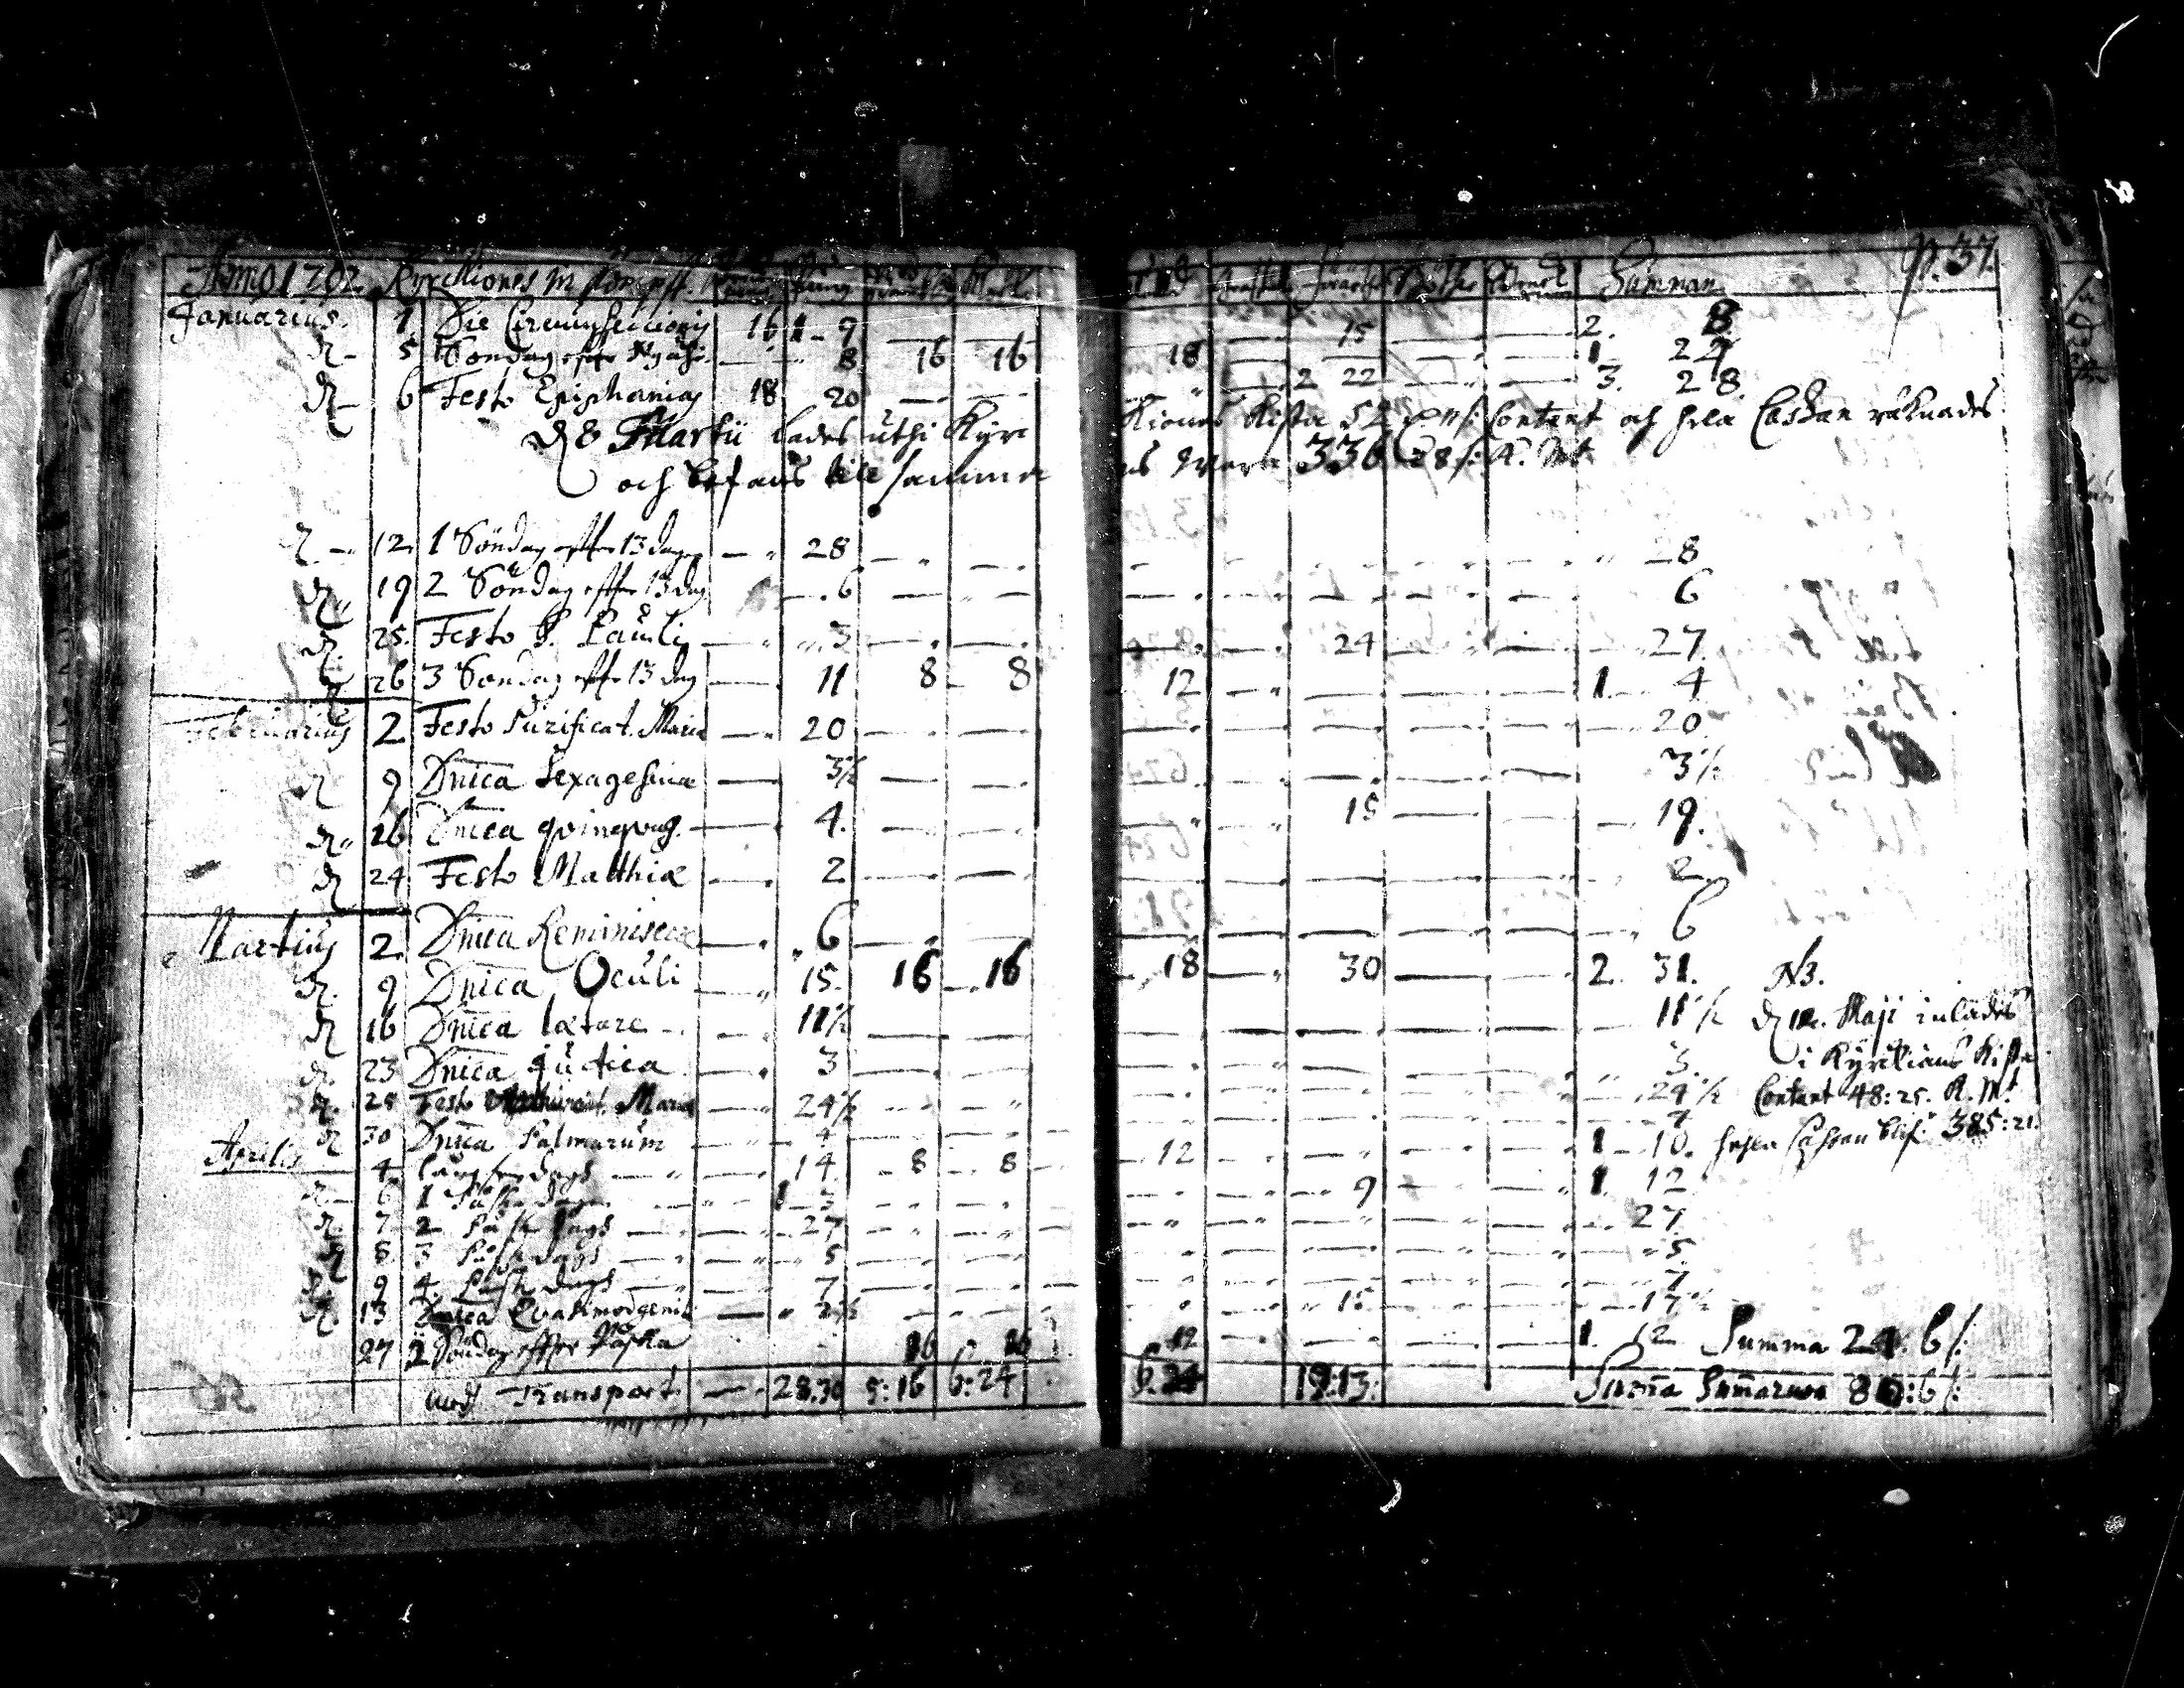 Anno 1702.
Summan p. 37.
Januarius. 1. Die Circumcisionis 16 1 - 9 15 2. 8
5 Söndag effter Nyåhr 8 16 16 18 1 24
6 Festo Epiphanias 18 20 2 22 3. 28
d 8 Martii lades uthi Kyrkiones Kista 52 Contant och hela Cassan räknades
och befans tilsammans wara 336 28 s: K. Mt
12 1 Söndag effter 13 dagen 28 28
19 2 Söndag effter 13 dag 6 6
25. Festo P. Pauli 3 24 27
26 3 Söndag effter 13 dag 11 8 8 12 1 4
Februarius 2 Festo Purificat. Mariæ 20 20
9 Dnica Sexagesima 3½ 3½
16 Dnica qvinqvag. 4. 15 19.
24 Festo Matthiæ 2 2
Martius 2. Dnica Reminiscere 6 6
9 Dnica Oculi 15. 16 16 18 30 2. 31. NB.
16 Dnica lætare 11½ 11½ d 12. Maji inlades
23 Dnica Judica 3 3. i Kyrkians Kista
25 Festo Mariæ 24½ 24½ Contant 48:25. K. Mt
30 Dnica Palmarum 4
Aprilis 4 långfredags 14 8 8 12 1 10. 385:21.
6 1 Påskdagen 1 3 9 1. 12
7 2 Påskdags 27 27
8 3 Påskdags 5 5.
9 4. Påskdags 7 7
13 Dnica Quasimodogenit. 2½ 15 17½
27 2 Söndag effter Påska 16 16 12 1. 12 Summa 24. 6 s:
Transport 28.30 5:16 6:24 19:13: Summa Summarum